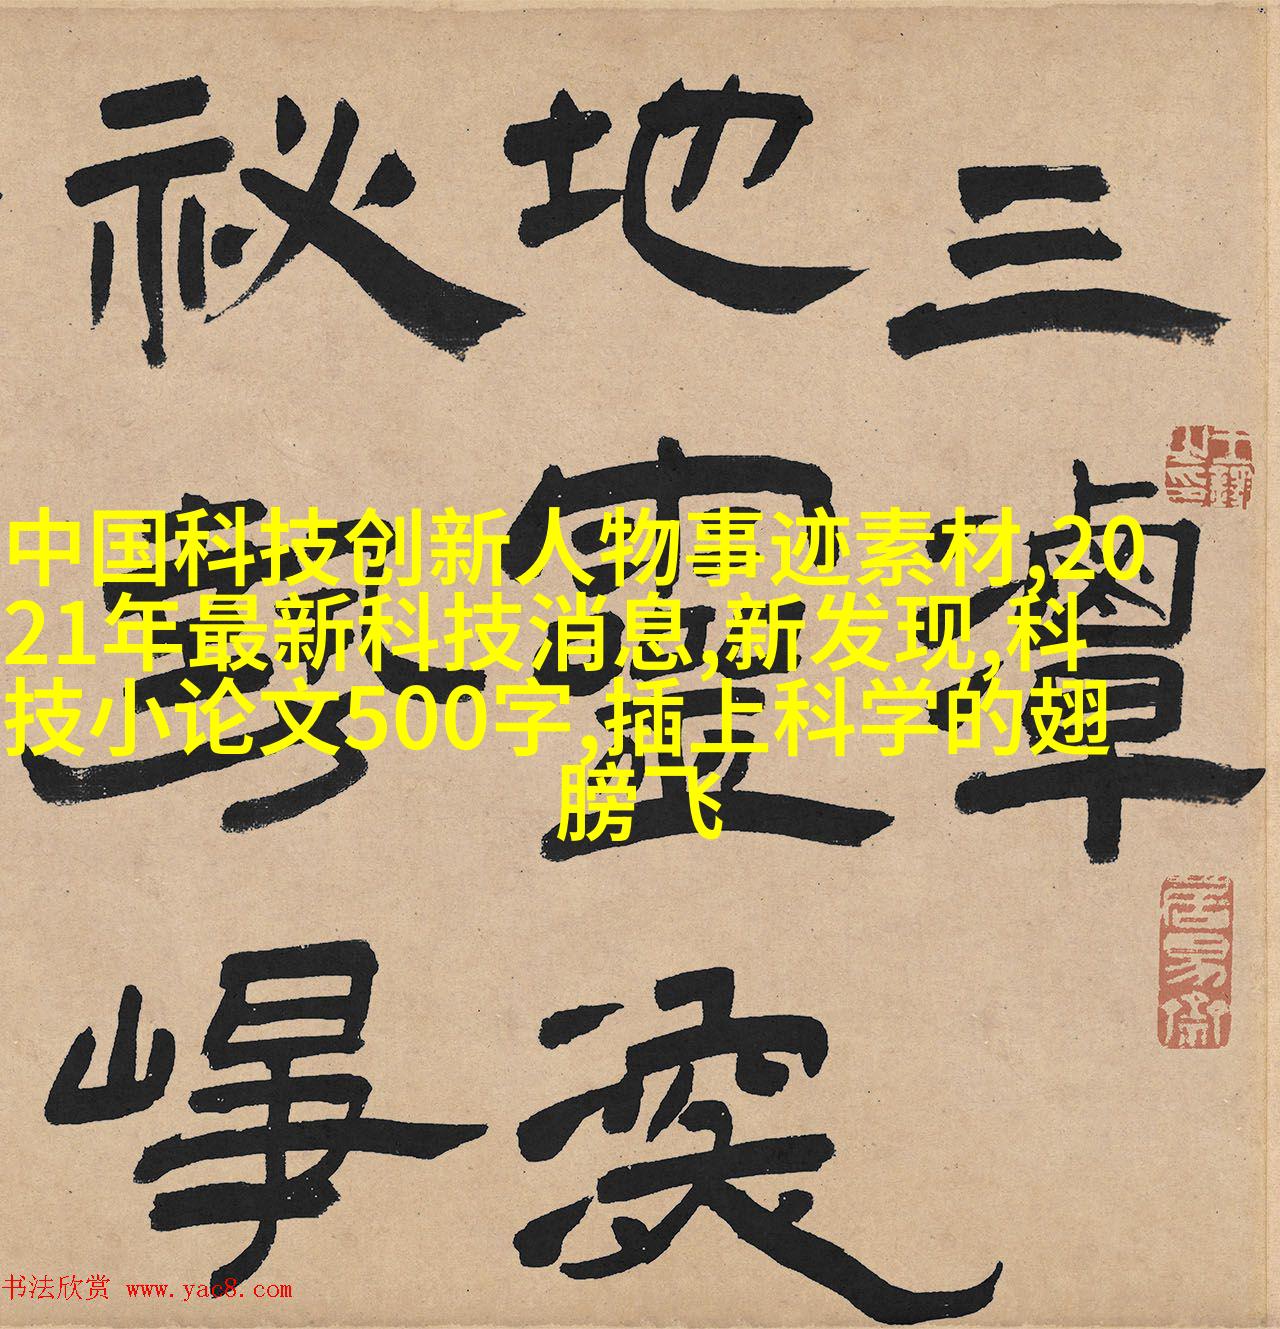 三潭
地靈
秘
崢
中国科技创新人物事迹素材,20
21年最新科技消息,新发现,科
技小论文500字,插上科学的翅
膀飞
书法欣赏 www.yac8.com